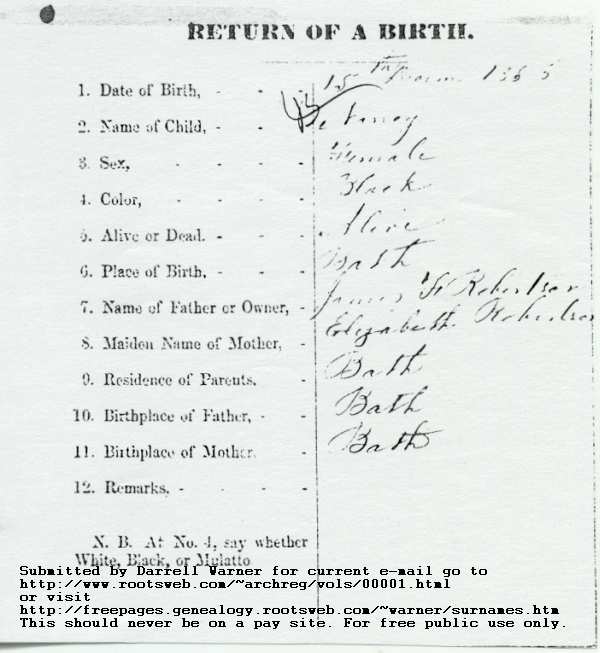 RETURN OF A BIRTH.
1. Date of Birth, - - - 15th
2. Name of Child, - - Nancy
3. Sex, - - - - Female
4. Color, - - - Black
5. Alive or Dead. - - - Alive
6. Place of Birth, - - - Bath
7. Name of Father or Owner, - James Robertson
8. Maiden Name of Mother, - Elizabeth Robertson
9. Residence of Parents. - Bath
10. Birthplace of Father, - - Bath
11. Birthplace of Mother. - Bath
12. Remarks. - - - -
N. B. At No. 4, say whether
White, Black, or Mulatto
Submitted by Darrell Warner for current e-mail go to
http://www.rootsweb.com/~archreg/vols/00001.html
or visit
http://freepages.genealogy.rootsweb.com/~warner/surnames.htm
This should never be on a pay site. For free public use only.